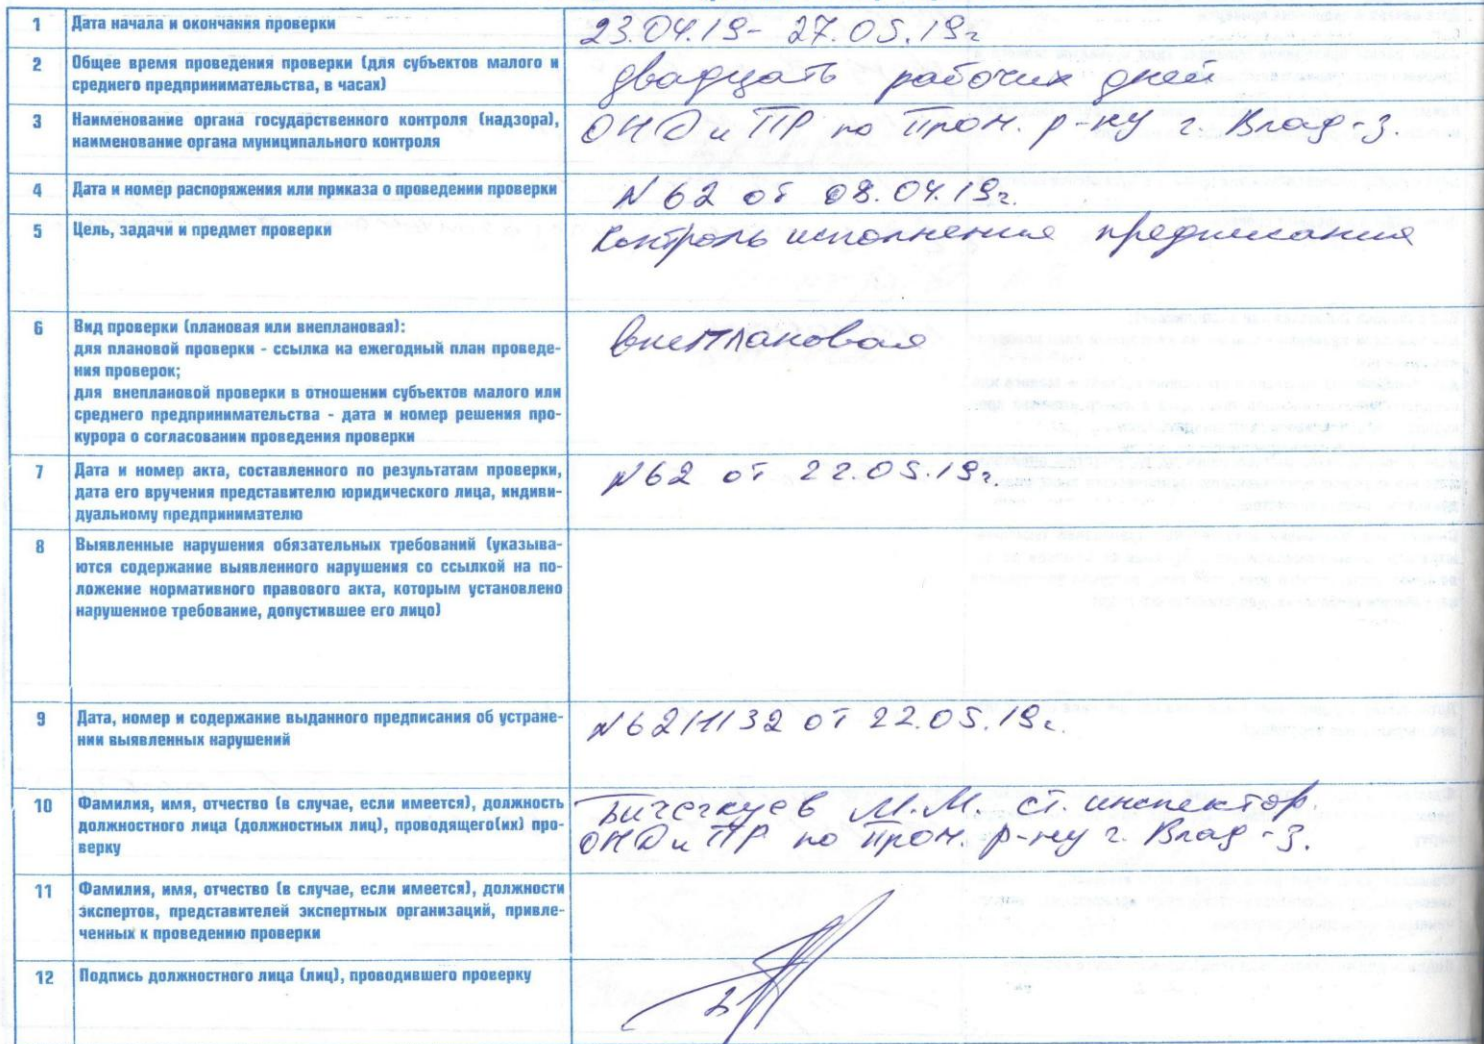 1 Дата начала и окончания проверки 23.04.19- 27.05.19г
2 Общее время проведения проверки (для субъектов малого и
среднего предпринимательства, в часах)
двадцать рабочих дней
3 Наименование органа государственного контроля (надзора),
наименование органа муниципального контроля
ОНД и ПР по Пром. р-ну г. Влад-з.
4 Дата и номер распоряжения или приказа о проведении проверки N 62 от 08.04.19г.
5 Цель, задачи и предмет проверки Контроль исполнения предписания
6 Вид проверки (плановая или внеплановая):
для плановой проверки - ссылка на ежегодный план проведе-
ния проверок;
для внеплановой проверки в отношении субъектов малого или
среднего предпринимательства - дата и номер решения про-
курора о согласовании проведения проверки
внеплановая
7 Дата и номер акта, составленного по результатам проверки,
дата его вручения представителю юридического лица, индиви-
дуальному предпринимателю
N62 от 22.05.19г.
8 Выявленные нарушения обязательных требований (указыва-
ются содержание выявленного нарушения со ссылкой на по-
ложение нормативного правового акта, которым установлено
нарушенное требование, допустившее его лицо)
9 Дата, номер и содержание выданного предписания об устране-
нии выявленных нарушений
N62/1/132 от 22.05.19г.
10 Фамилия, имя, отчество (в случае, если имеется), должность
должностного лица (должностных лиц), проводящего(их) про-
верку
Бичегкуев М.М. ст. инспектор.
ОНД и ПР по Пром. р-ну г. Влад-з.
11 Фамилия, имя, отчество (в случае, если имеется), должности
экспертов, представителей экспертных организаций, привле-
ченных к проведению проверки
12 Подпись должностного лица (лиц), проводившего проверку